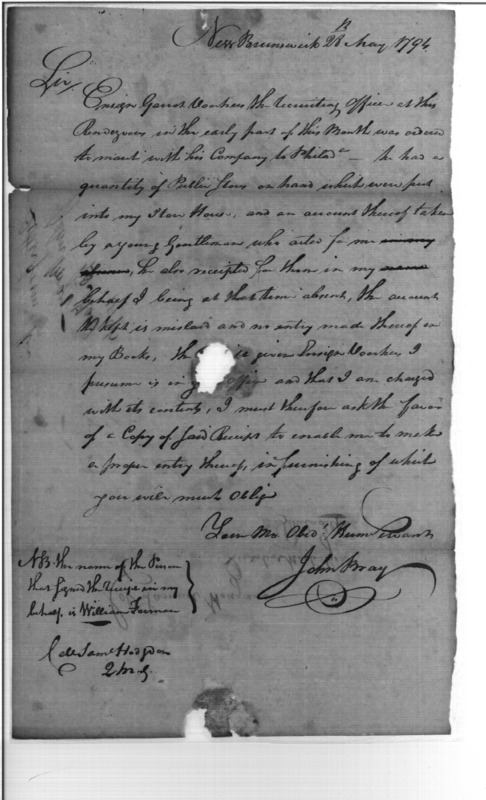 New Brunswick 28 May 1794
Sir,
Ensign Garret Voorhees the recruiting Officer at this
Rendezvous in the early part of this Month was ordered
to march with his Company to Philada — he had a
quantity of Public Stores on hand which were put
into my Store House, and an account thereof taken
by a young Gentleman who acted for me in my
he also receipted for them in my name
behalf I being at that time absent, the account
kept is mislaid and no entry made thereof in
my Books, The given Ensign Voorhees I
presume is in office and that I am charged
with its contents, I must therefore ask the favor
of a Copy of said Receipt to enable me to make
a proper entry thereof, in furnishing of which
you will much Oblige
Your Mo Obedt Hum Servant
John Bray
NB. the name of the Person
that signed the Receipt in my
behalf is William Forman
Saml Hodgdon
2 M G